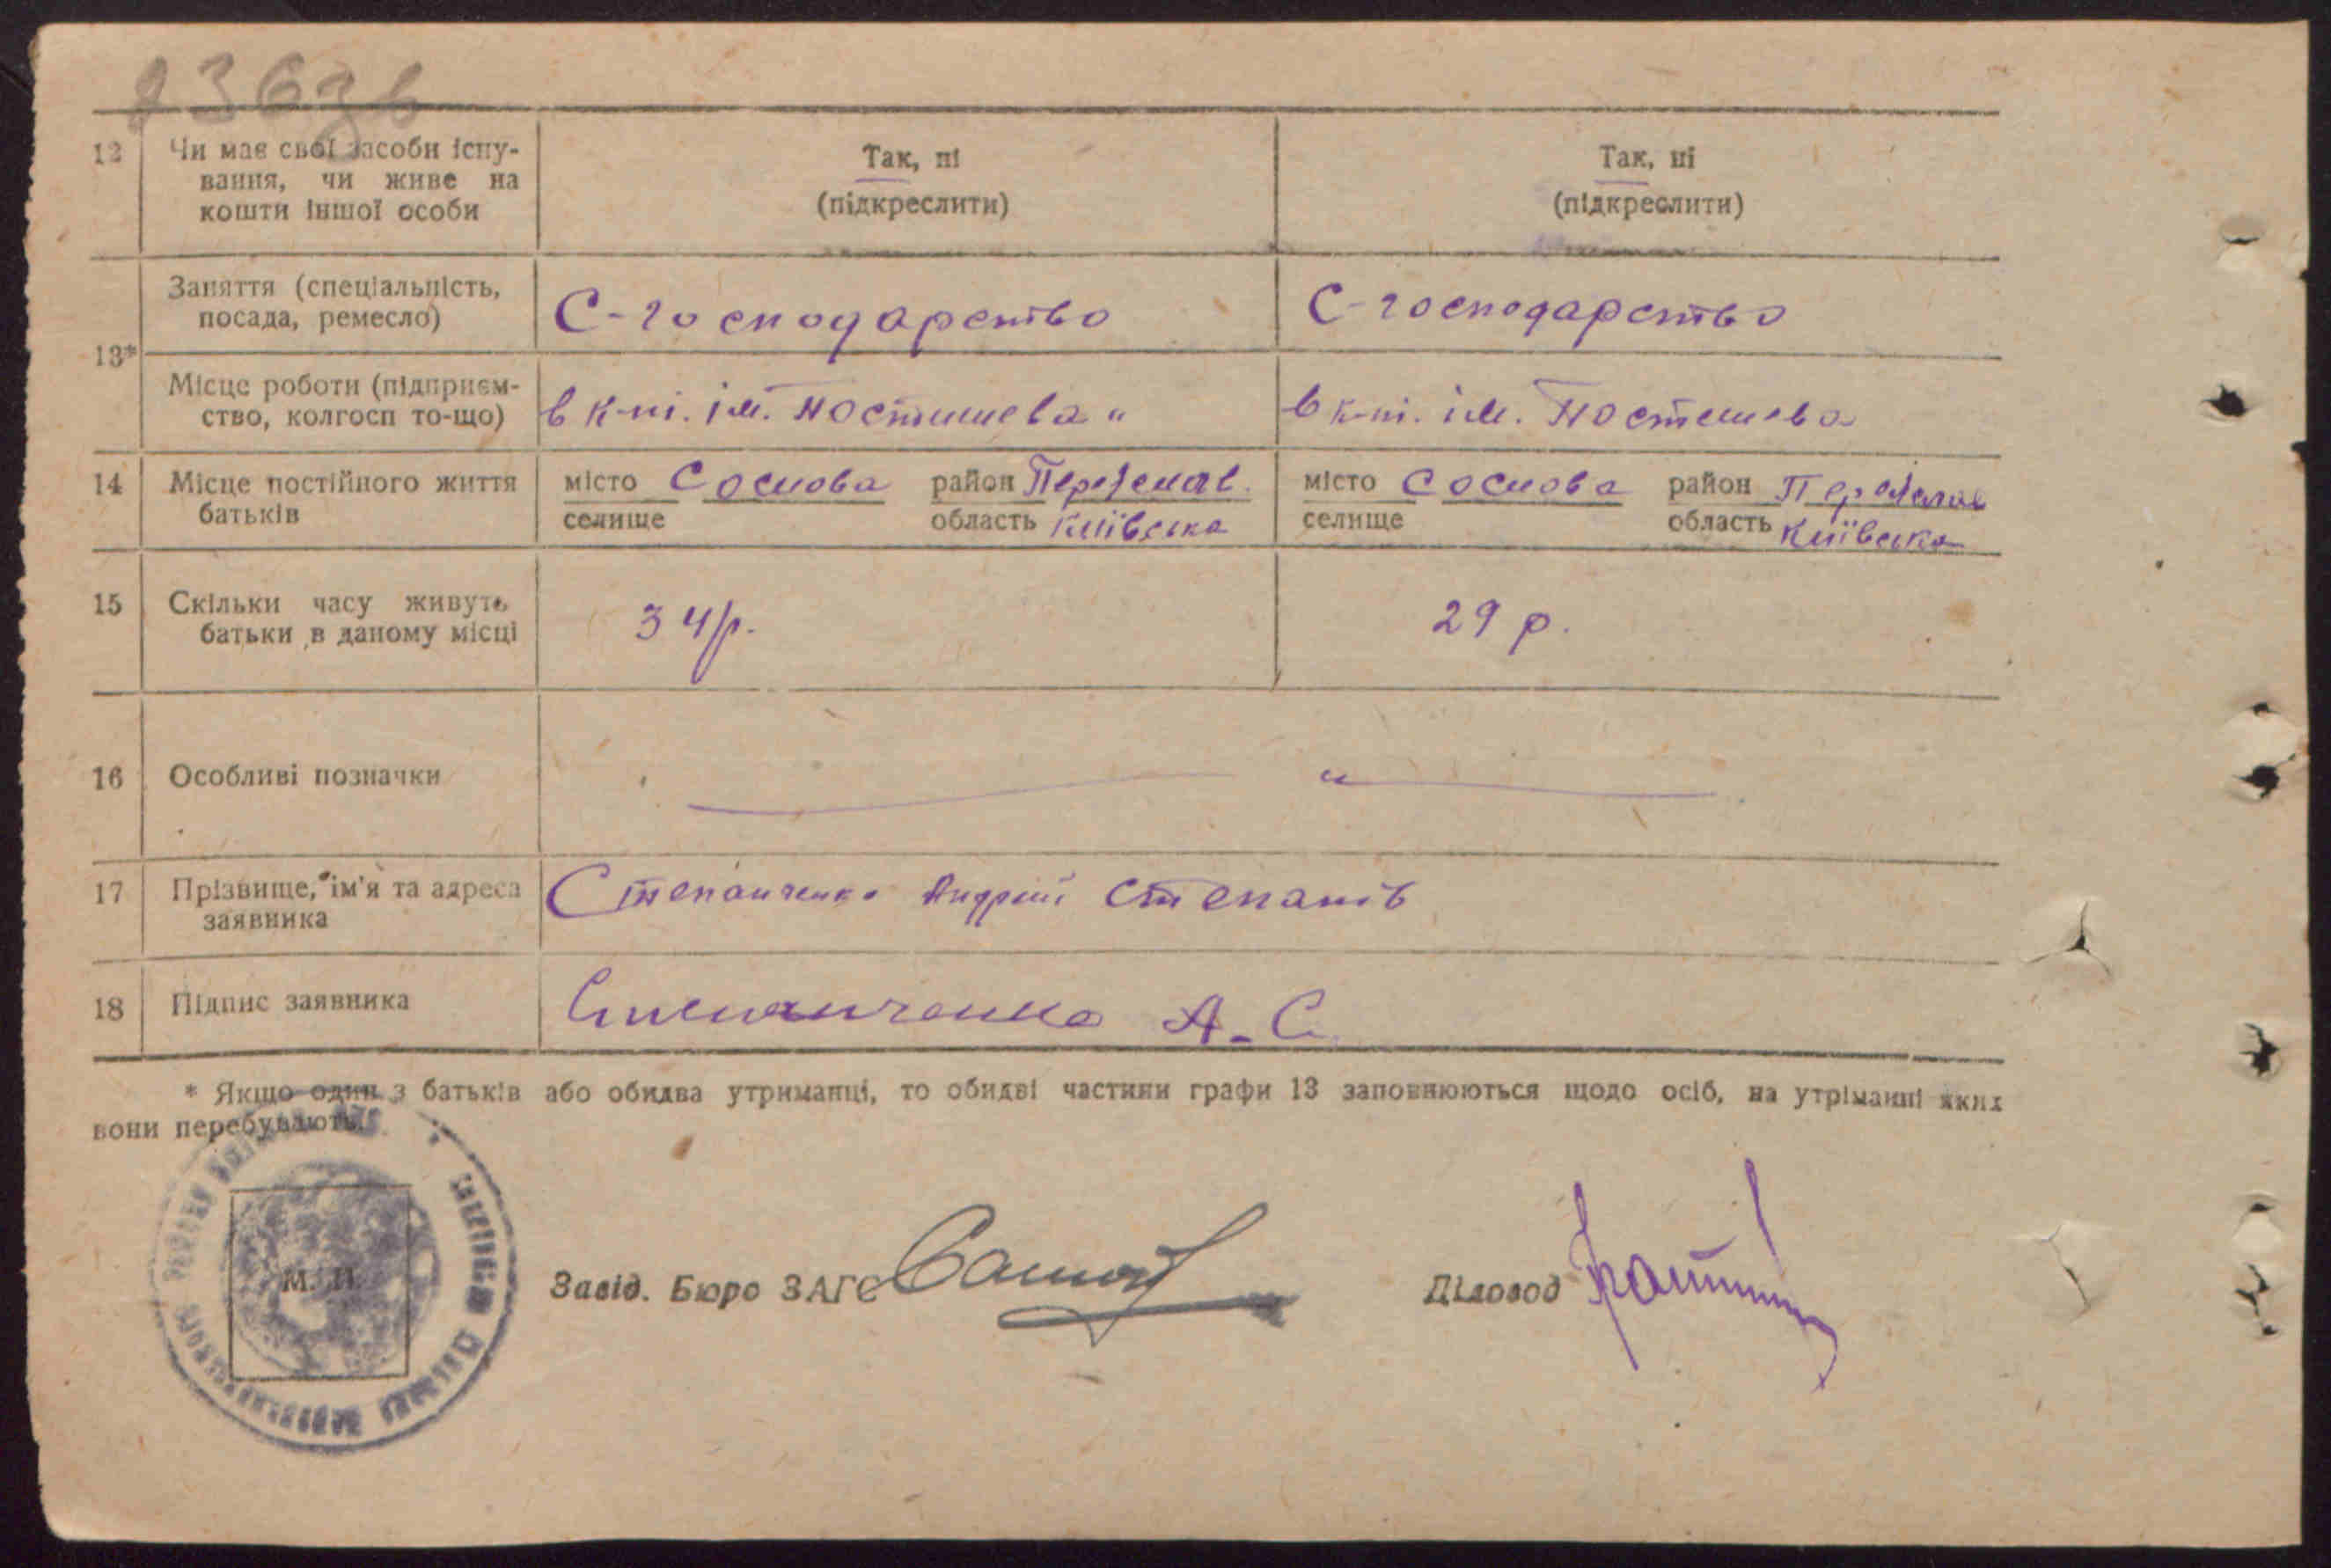 12 Чи має свої засоби існу- Так, ні Так, ні
вання, чи живе на (підкреслити) (підкреслити)
кошти іншої особи
Заняття (спеціальність, С-господарство С-господарство
посада, ремесло)
13*
Місце роботи (підприєм- в к-пі. ім. Постишева" в к-пі. ім. Постишева
ство, колгосп то-що)
14 Місце постійного життя місто Соснова район Переяслав. місто Соснова район Переяслав
батьків селище область Київська селище область Київська
15 Скільки часу живуть 34р. 29 р.
батьки в даному місці
16 Особливі позначки
17 Прізвище, ім'я та адреса Степанченко Андрій Степанів
заявника
18 Підпис заявника Степанченко А-С.
* Якщо один з батьків або обидва утриманці, то обидві частини графи 13 заповнюються щодо осіб, на утріманні яких
вони перебувають.
М. П.
Завід. Бюро ЗАГС Діловод